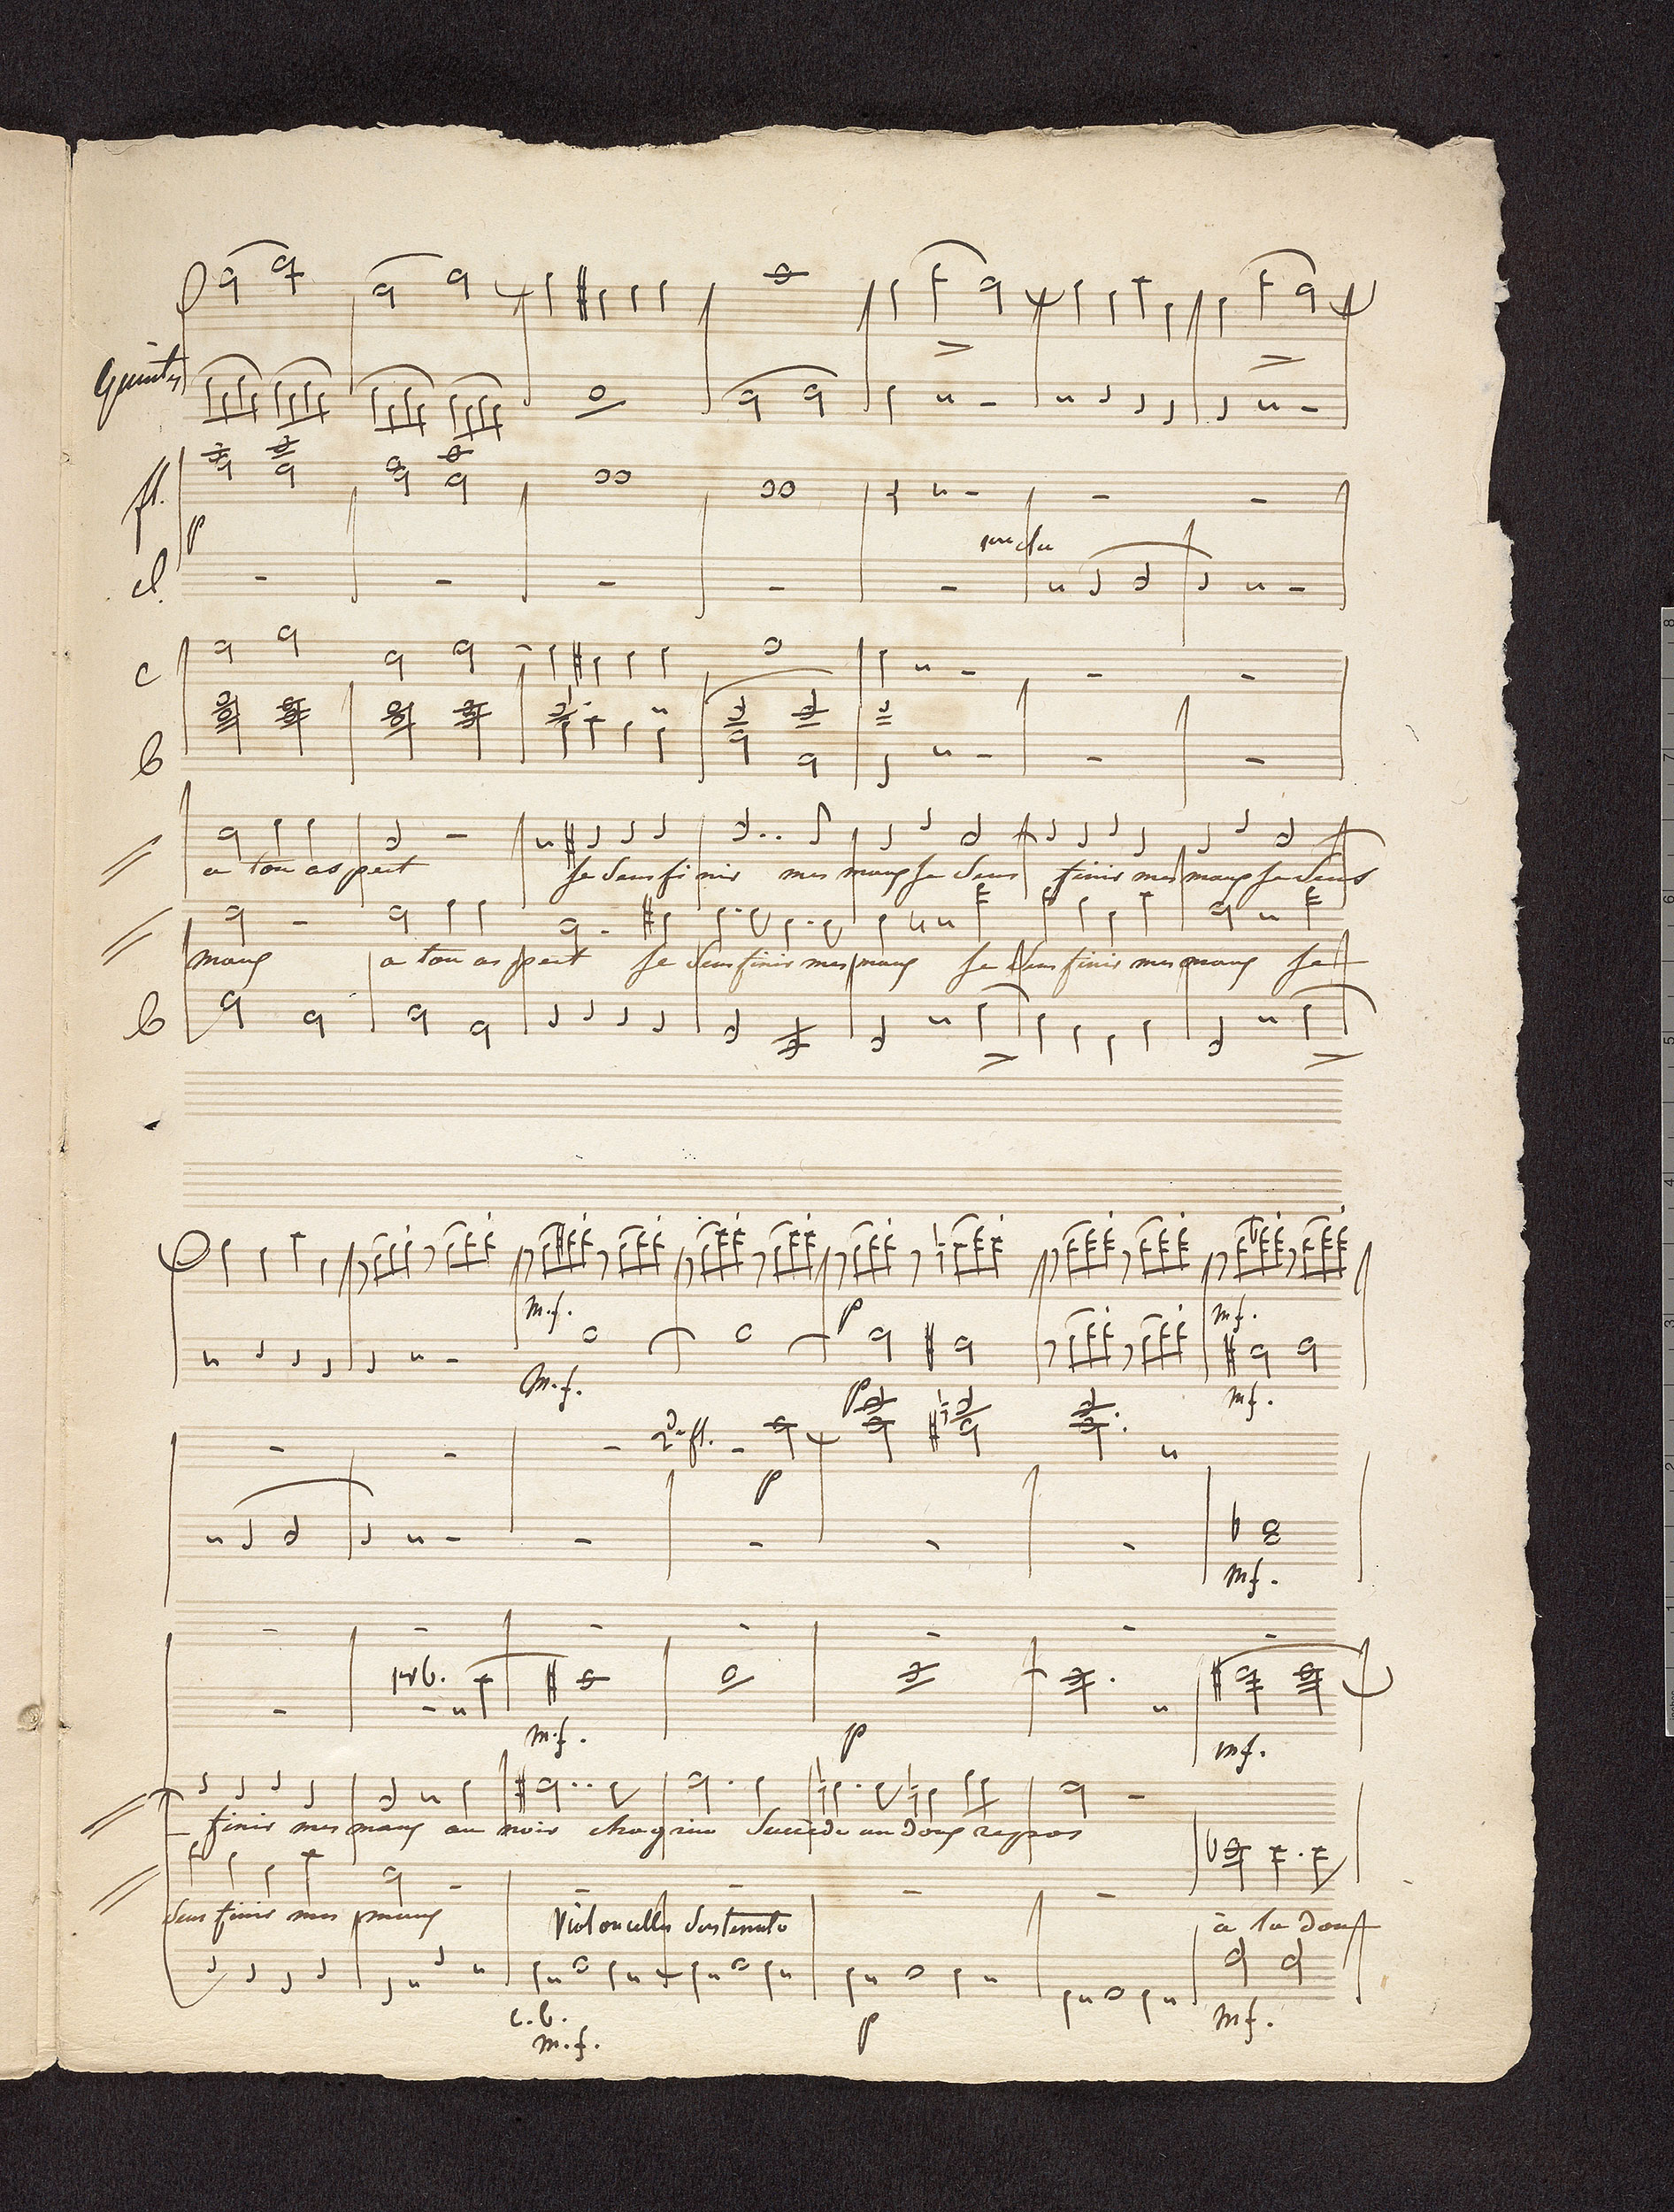 Quintes
fl.
p
cl.
c
b
a ton aspect Je Sens finir mes maux Je Sens finir mes maux Je Sens
maux a ton aspect Je Sens finir mes maux Je Sens finir mes maux Je
b
m.f. p m.f.
m.f. p m.f.
2de fl.
p
m.f.
1er b.
m.f. p m.f.
finir mes maux au noir chagrin Succède un doux repos
Sens finir mes maux Violoncelles Sostenuto à la douce
c.b.
m.f. p m.f.